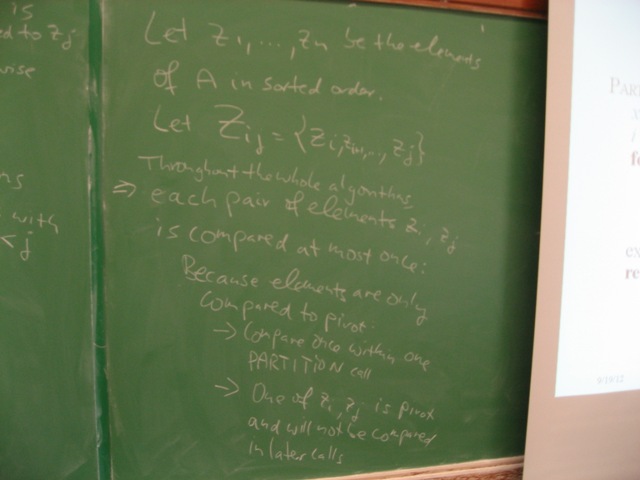 is
ed to zj
wise
ns
with
< j
Let z1, ..., zn be the elements
of A in sorted order.
Let Zij = {zi, zi+1, ..., zj}
Throughout the whole algorithm,
⇒ each pair of elements zi, zj
is compared at most once:
Because elements are only
compared to pivot.
→ Compare once within one
PARTITION call
→ One of zi, zj is pivot
and will not be compared
in later calls
PAR
x
fo
ex
re
9/19/12